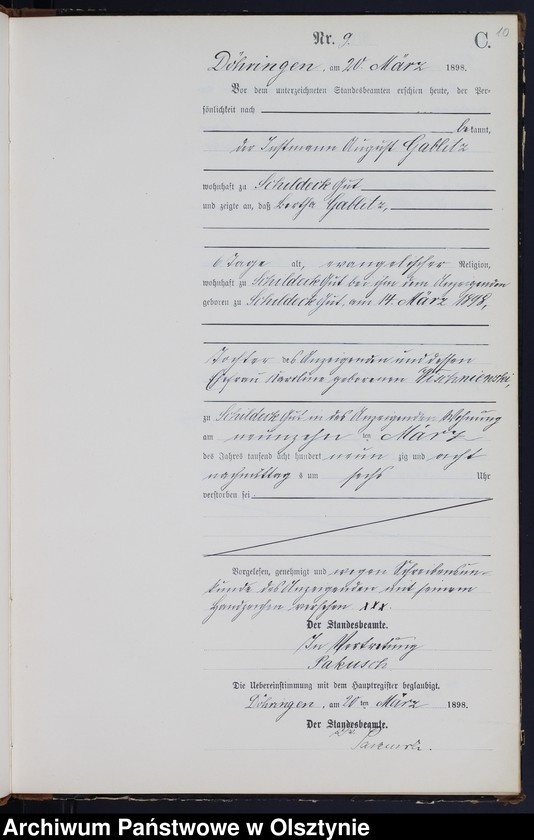 10
Nr. 9.
C.
Döhringen, am 20. März 1898.
Vor dem unterzeichneten Standesbeamten erschien heute, der Per-
sönlichkeit nach
bekannt,
der Instmann August Gablitz
wohnhaft zu Schildeck Gut
und zeigte an, daß Bertha Gablitz,
6 Tage alt, evangelischer Religion,
wohnhaft zu Schildeck Gut bei ihm dem Anzeigenden
geboren zu Schildeck Gut, am 14. März 1898,
Tochter des Anzeigenden und dessen
Ehefrau Karline geborenen Wischniewski,
zu Schildeck Gut in des Anzeigenden Wohnung
am neunzehn ten März
des Jahres tausend acht hundert neun zig und acht
nachmittag s um sechs Uhr
verstorben sei
Vorgelesen, genehmigt und wegen Schreibensun-
kunde des Anzeigenden mit seinem
Handzeichen versehen xxx.
Der Standesbeamte.
In Vertretung
Pakusch
Die Uebereinstimmung mit dem Hauptregister beglaubigt.
Döhringen, am 20 ten März 1898.
Der Standesbeamte.
Archiwum Państwowe w Olsztynie